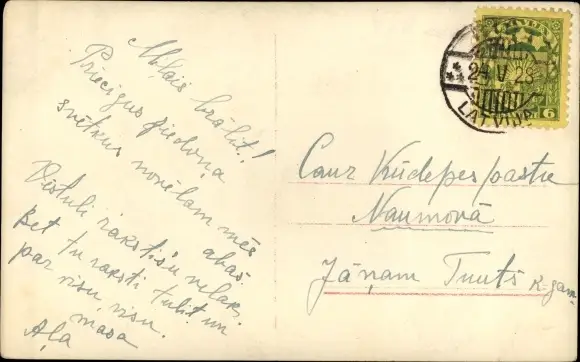 Mīļais brālīt!
Priecīgus ziedoņa
svētkus novēlam mēs
abas
Vēstuli rakstīšu vēlāk.
Bet tu raksti tūlīt un
par visu, visu.
māsa
Aļa
LATVIJA
24 V 28
LATVIJA
6
Caur Kūdepes pastu
Naumovā
Jāņam Tuuts k-gam